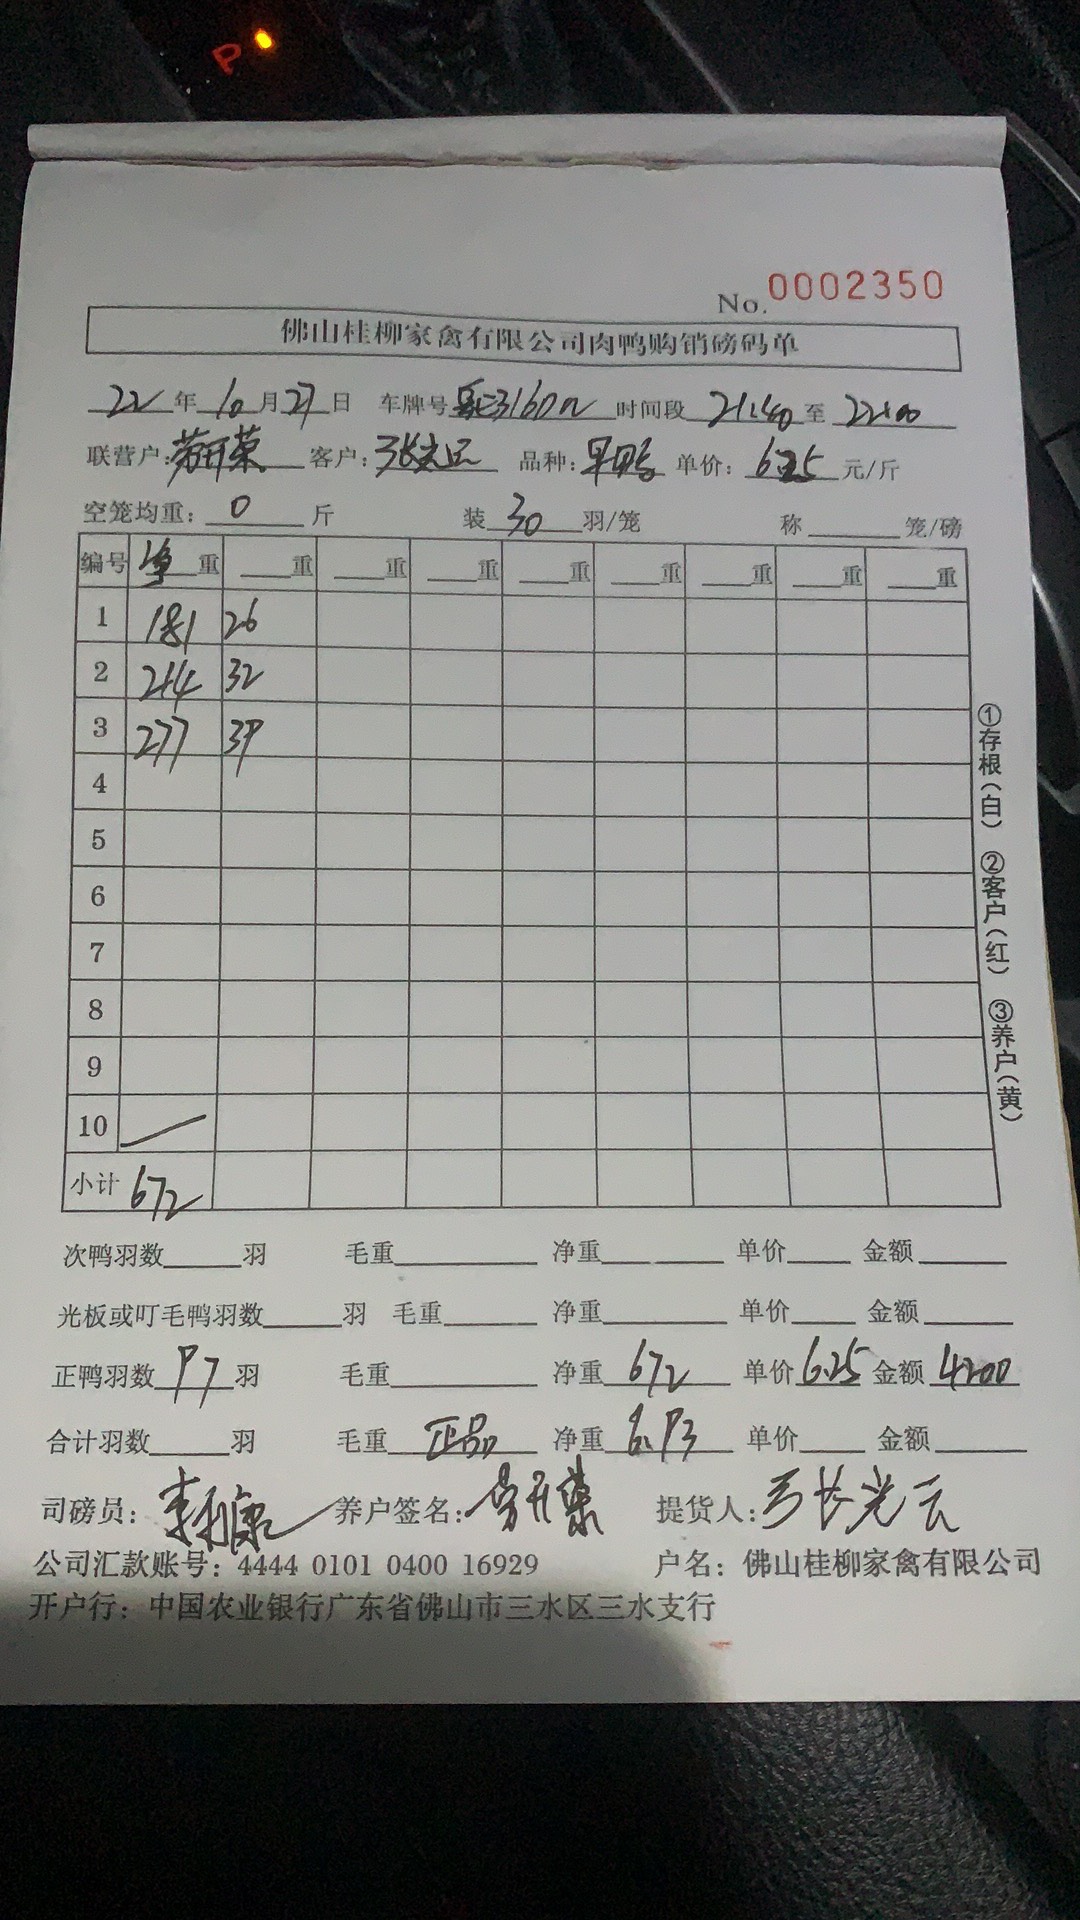 P
No. 0002350
佛山桂柳家禽有限公司肉鸭购销磅码单
22 年 10 月 27 日 车牌号 3160 时间段 21:40 至 22:00
联营户: 劳开荣 客户: 张光云 品种: 旱鸭 单价: 6.25 元/斤
空笼均重: 0 斤 装 30 羽/笼 称 笼/磅
编号 净重 重 重 重 重 重 重 重 重
1 181 26
2 214 32
3 277 39
4
5
6
7
8
9
10
小计 672
①存根(白) ②客户(红) ③养户(黄)
次鸭羽数 羽 毛重 净重 单价 金额
光板或叮毛鸭羽数 羽 毛重 净重 单价 金额
正鸭羽数 97 羽 毛重 净重 672 单价 6.25 金额 4200
合计羽数 羽 毛重 正品 净重 6.93 单价 金额
司磅员: 养户签名: 劳开荣 提货人: 张光云
公司汇款账号: 4444 0101 0400 16929 户名: 佛山桂柳家禽有限公司
开户行: 中国农业银行广东省佛山市三水区三水支行